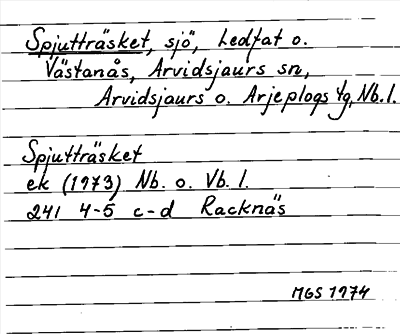 Spjutträsket, sjö, Ledfat o.
Västanås, Arvidsjaurs sn,
Arvidsjaurs o. Arjeplogs tg, Nb. l.
Spjutträsket
ek (1973) Nb. o. Vb. l.
241 4-5 c-d Racknäs
MGS 1974